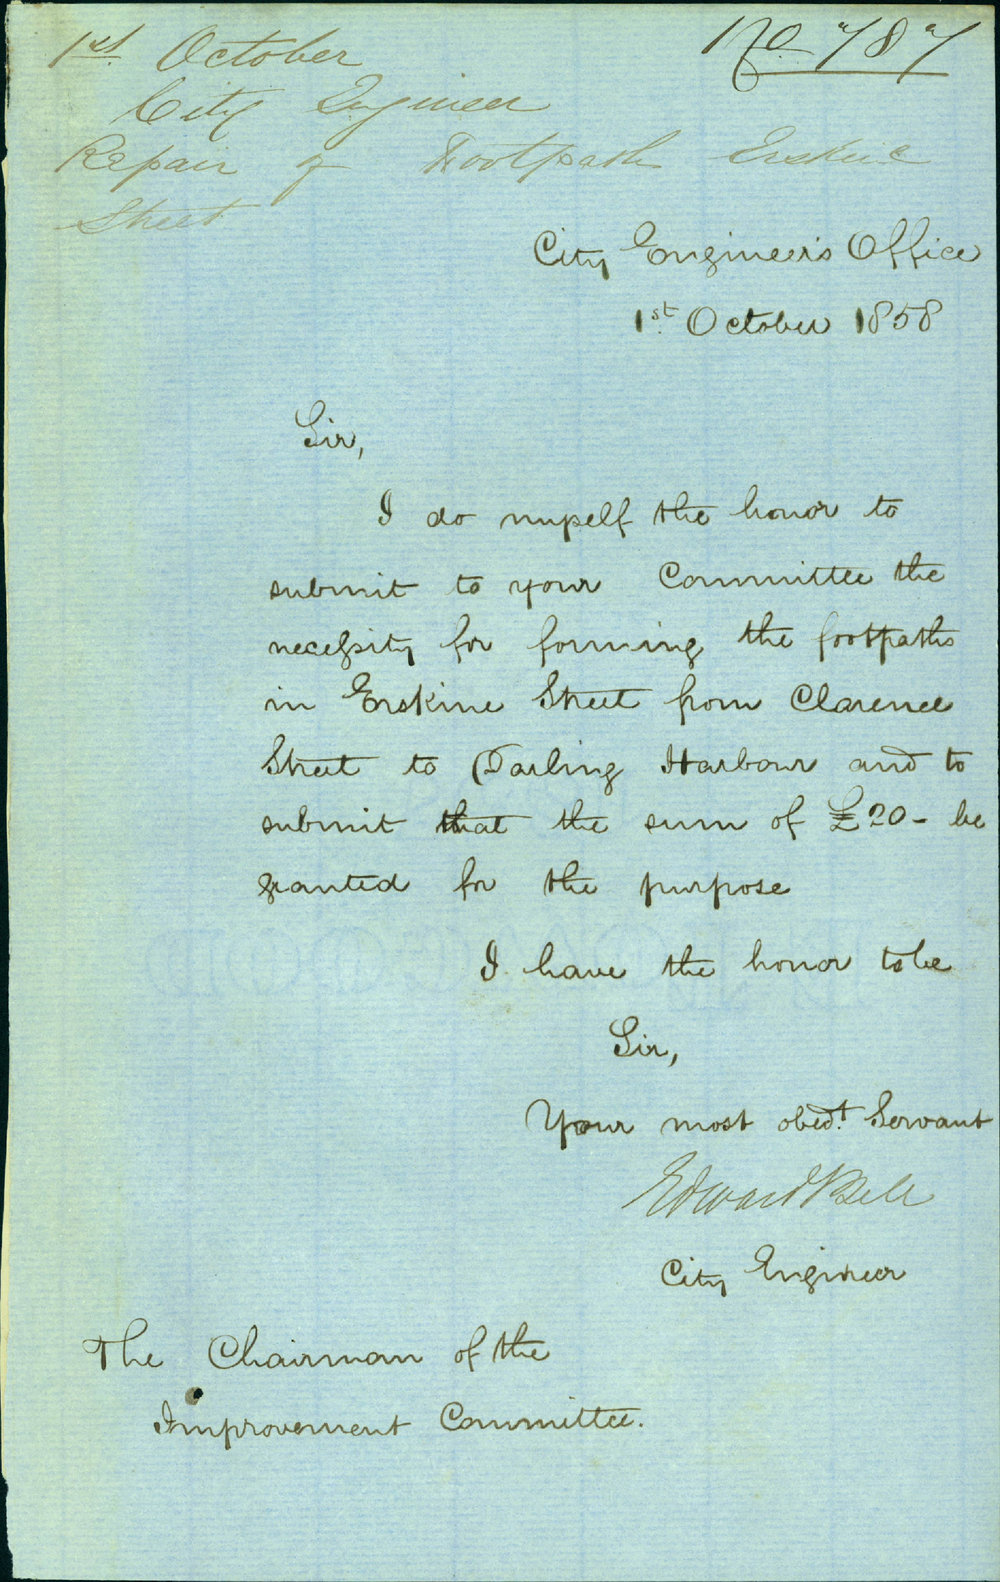 1st. October
No 787
City Engineer
Repair of Footpath Erskine
Street
City Engineer's Office
1st. October 1858
Sir,
I do myself the honor to
submit to your Committee the
necessity for forming the footpaths
in Erskine Street from Clarence
Street to Darling Harbour and to
submit that the sum of £20 - be
granted for the purpose
I have the honor to be
Sir,
Your most obedt. Servant
Edward Bell
City Engineer
The Chairman of the
Improvement Committee.